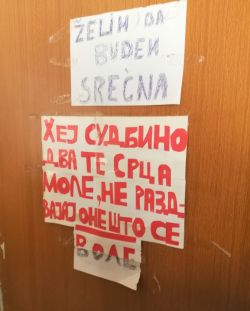 ŽELIM DA
BUDEM
SREĆNA
ХЕЈ СУДБИНО
ДВА ТЕ СРЦА
МОЛЕ, НЕ РАЗД-
ВАЈАЈ ОНЕ ШТО СЕ
ВОЛЕ